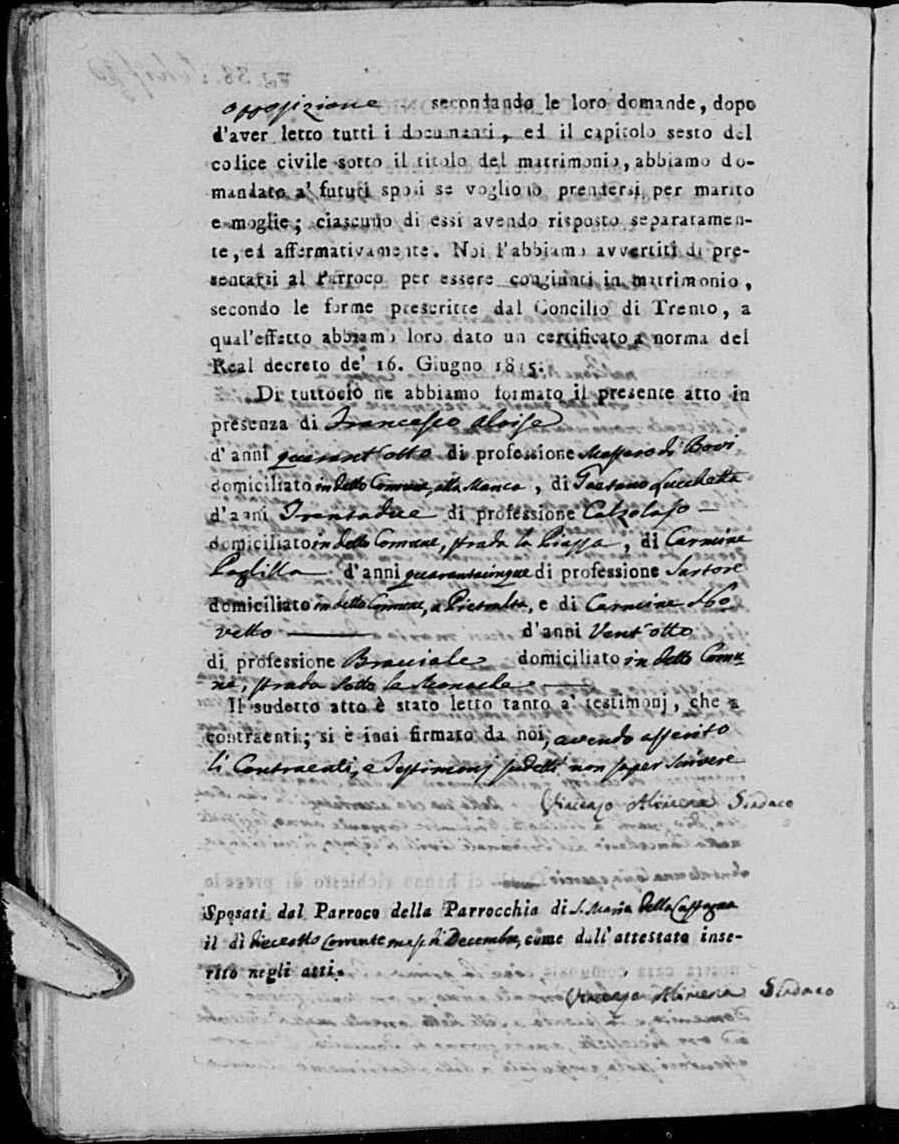 opposizione secondando le loro domande, dopo
d'aver letto tutti i documenti, ed il capitolo sesto del
codice civile sotto il titolo del matrimonio, abbiamo do-
mandato a' futuri sposi se vogliono prendersi per marito
e moglie; ciascuno di essi avendo risposto separatamen-
te, ed affermativamente. Noi l'abbiamo avvertiti di pre-
sentarsi al Parroco per essere congiunti in matrimonio,
secondo le forme prescritte dal Concilio di Trento, a
qual'effetto abbiamo loro dato un certificato a norma del
Real decreto de' 16. Giugno 1815.
Di tuttociò ne abbiamo formato il presente atto in
presenza di Francesco Aloise
d'anni quarant'otto di professione Massaro di Bovi
domiciliato in detto Comune, alla Manca, di Gaetano Lucchetta
d'anni Trentadue di professione Calzolajo —
domiciliato in detto Comune, strada la Piazza, di Carmine
d'anni quarantacinque di professione Sartore
domiciliato in detto Comune, a Pietralta, e di Carmine
vello — d'anni Vent'otto
di professione Bracciale domiciliato in detto Comu-
ne, strada sotto le Monache —
Il sudetto atto è stato letto tanto a' testimonj, che a
contraenti; si è indi firmato da noi, avendo asserito
li Contraenti, e Testimonj sudetti non saper scrivere
Vincenzo Sindaco
Sposati dal Parroco della Parrocchia di S. Maria della
il dì dieciotto corrente mese di Decembre, come dall'attestato inse-
rito negli atti.
Vincenzo Sindaco